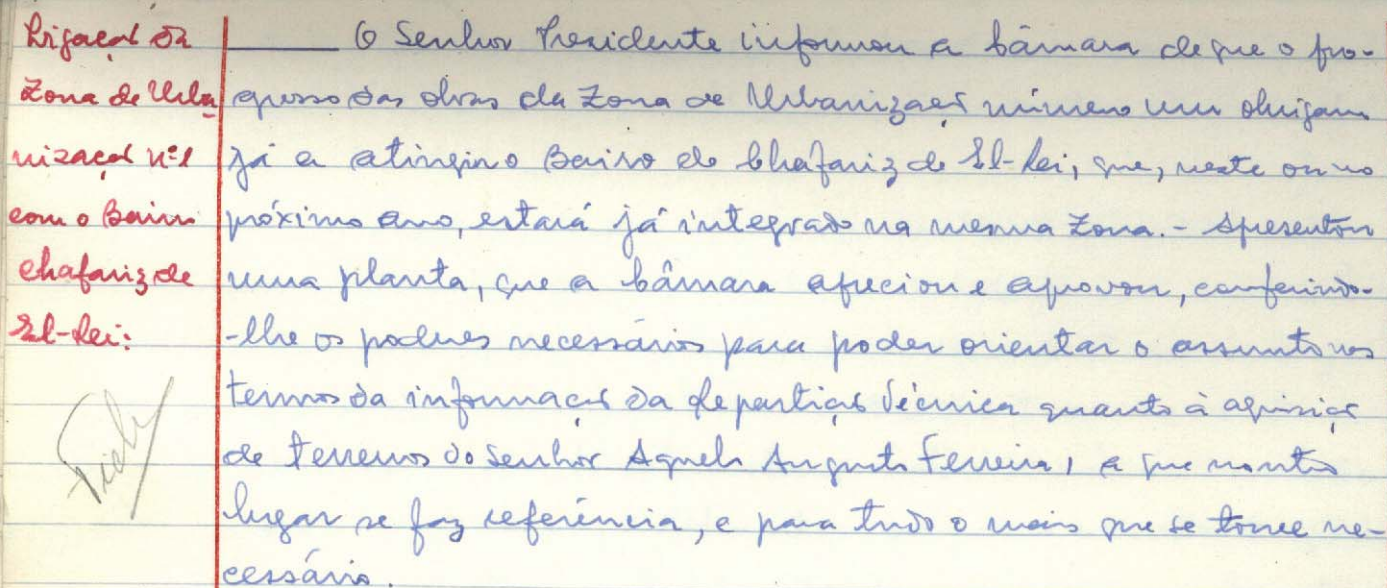 Ligação da
Zona de Urba
nização nº1
com o Bairro
Chafariz de
El-Rei:
______ O Senhor Presidente informou a Câmara de que o pro-
gresso das obras da Zona de Urbanização número um obrigam
já a atingir o Bairro do Chafariz de El-Rei, que, neste ou no
próximo ano, estará já integrado na mesma Zona. - Apresentou
uma planta, que a Câmara apreciou e aprovou, conferindo-
-lhe os poderes necessários para poder orientar o assunto nos
termos da informação da Repartição Técnica quanto à aquisição
de terrenos do Senhor Agnelo Augusto Ferreira, a que noutro
lugar se faz referência, e para tudo o mais que se torne ne-
cessário.